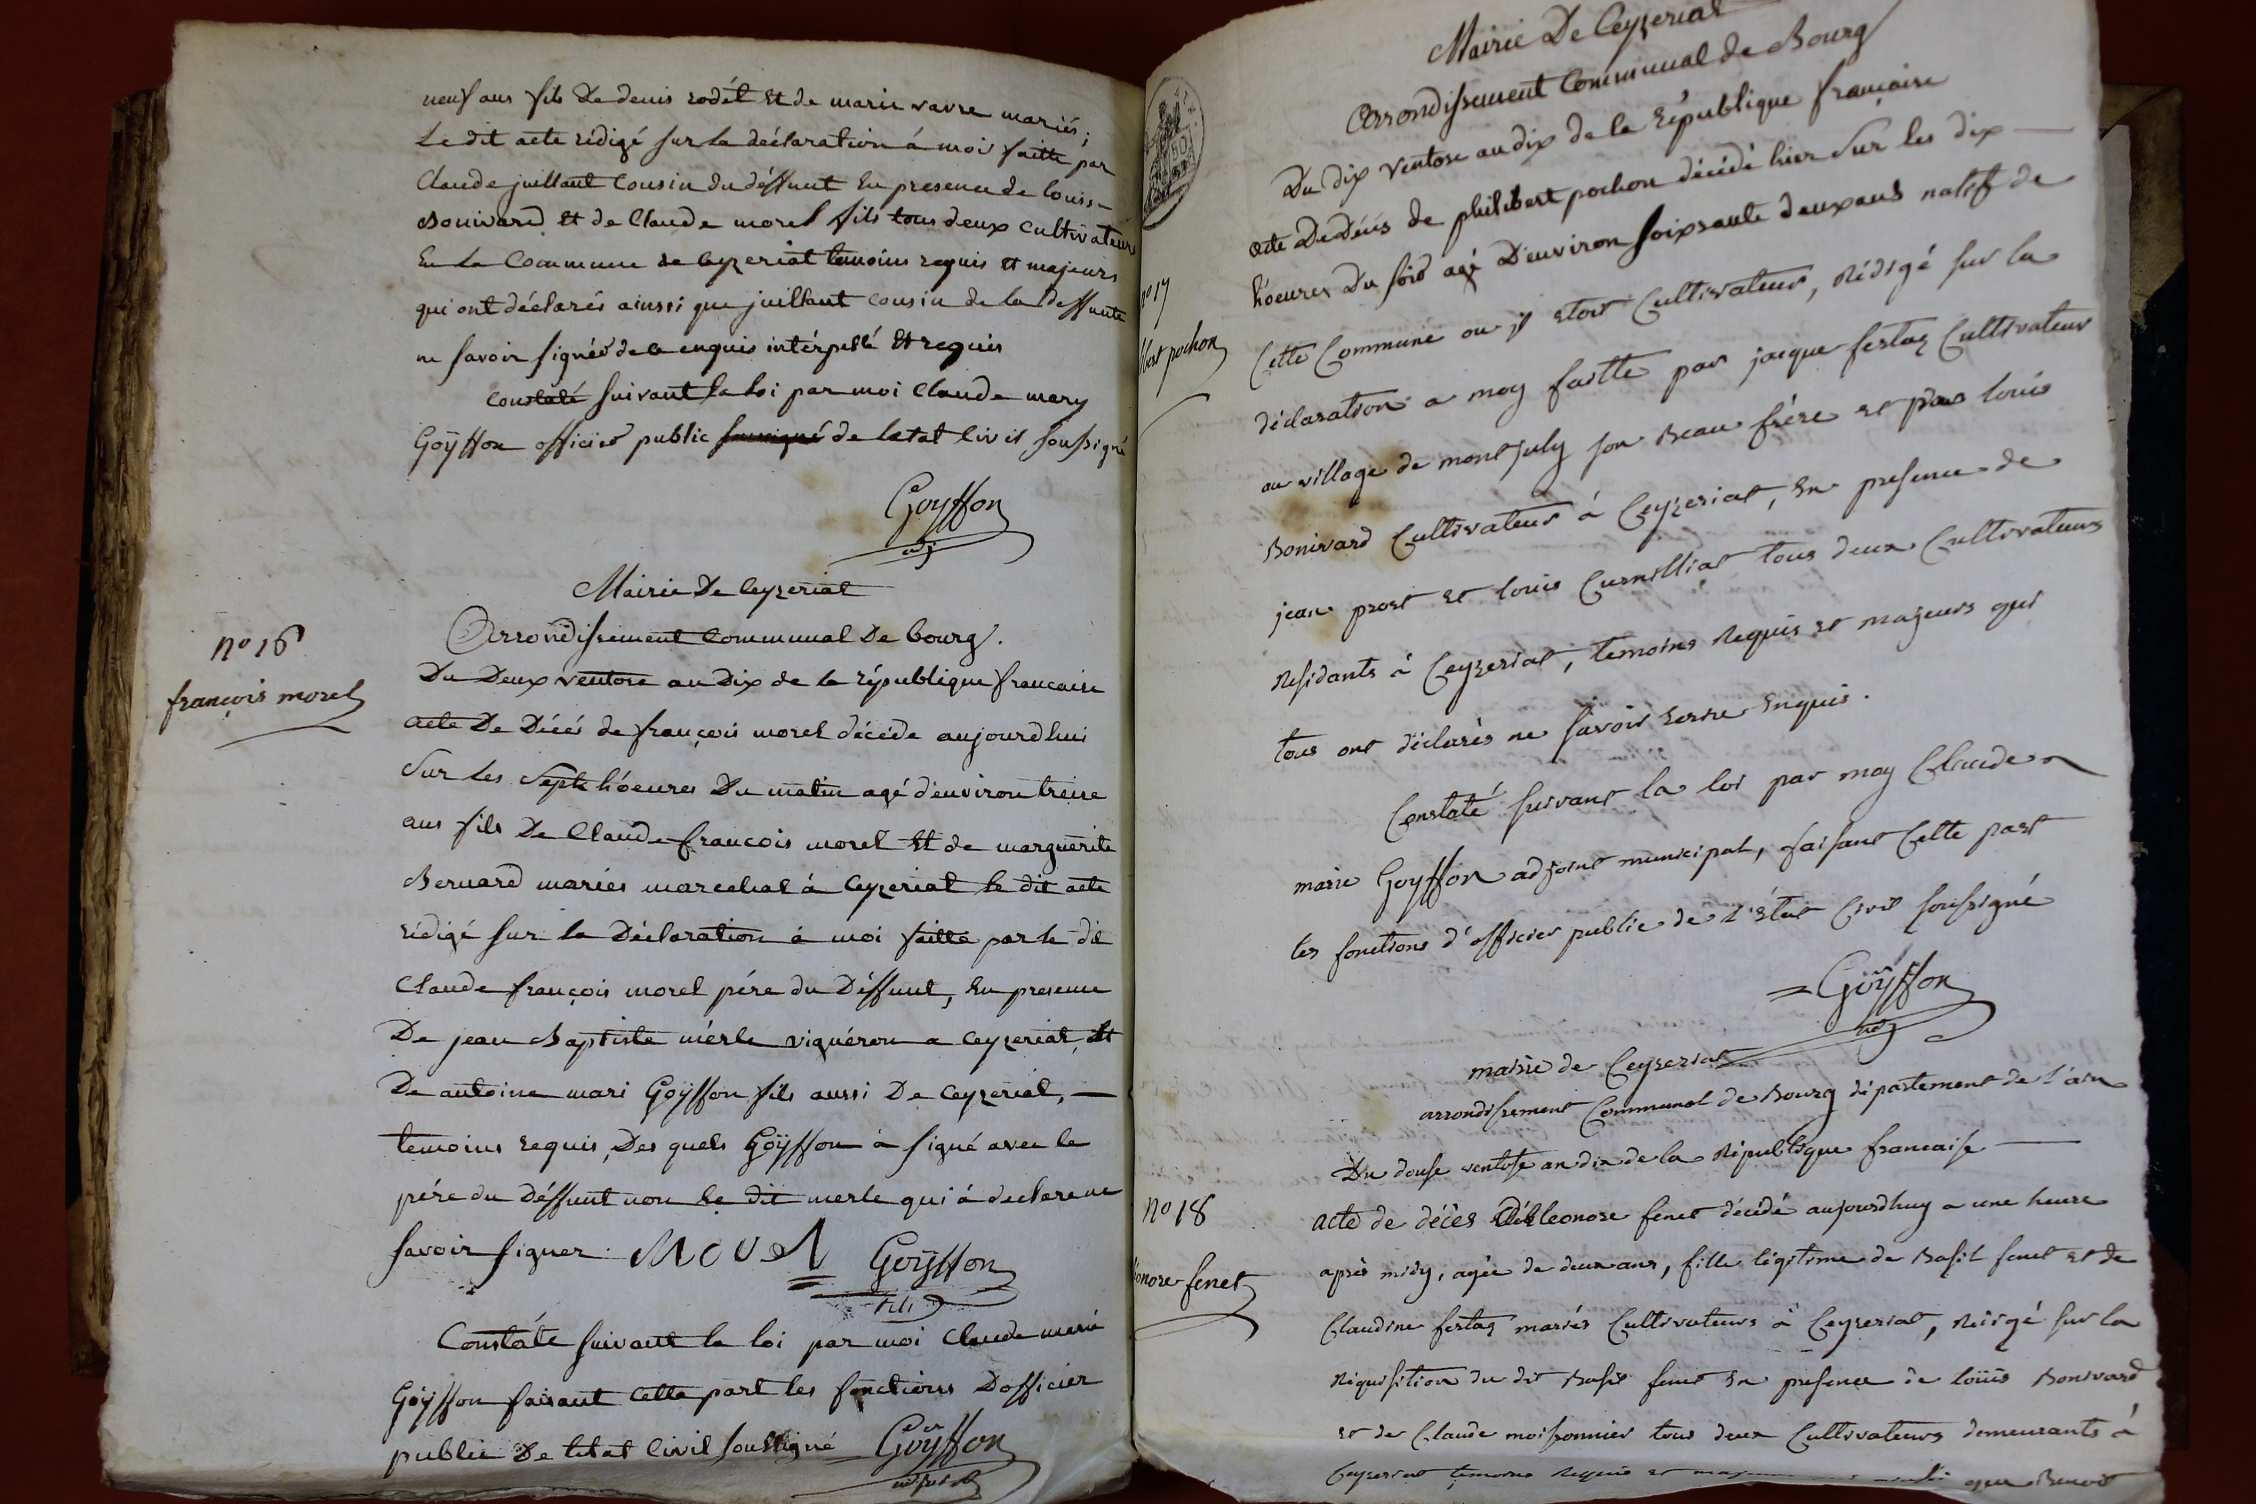 neuf ans fils De denis rodét Et de marie vavre mariés;
Le dit acte rédigé sur La déclaration á moi faitte par
Claude juillant Cousin du déffunt En presence de louis
Bonivard Et de Claude morel fils tous deux Cultivateurs
En La Commune de Ceyzeriat temoins requis Et majeurs
qui ont déclarés ainssi que juillant Cousin de la Deffunte
ne savoir signér de ce enquis intérpellé Et requis
Constaté suivant La loi par moi Claude mary
Goÿffon officier public soussigné de letat Civil soussigné
Goyffon
adj
Mairie De Ceyzeriat
Arrondissement Communal De bourg.
nº 16
françois morel
Du Deux ventose an Dix de la république francaise
acte De Décés de françois morel décéde aujourdhui
Sur Les Sept hóeures Du matin agé d'environ treise
ans fils De Claude françois morel Et de marguerite
Bernard mariés marechal á Ceyzeriat le dit acte
rédigé sur la Déclaration á moi faitte par le dit
Claude françois morel pére du Déffunt, En presence
De jean Baptiste mérle vignéron a Ceyzeriat, Et
De antoine mari Goÿffon fils aussi De Ceyzeriat,
temoins requis, Des quels Goÿffon á signé avec le
pére du Déffunt non Le dit merle qui á declare ne
savoir signer. MOREL Goÿffon
fils
Constáte suivant la loi par moi Claude marie
Goÿffon faisant Cette part les fonctions Dofficier
public De létat Civil soussigné Goÿffon
adjoint
Mairie De Ceyzeriat
Arrondissement Communal de Bourg
Du dix Ventose an dix de la République française
nº 17
pochon
acte De Décés de philibert pochon décédé hier Sur les dix
hóeures Du soir agé D'environ soixsante deux ans natif de
Cette Commune ou il etoit Cultivateur, Rédigé sur la
déclaration a moy faitte par jacque festaz Cultivateur
au village de montjuly son Beau frére et par louis
Bonivard Cultivateur á Ceyzeriat, En presence de
jean prost et louis Curnilliat tous deux Cultivateurs
Residants á Ceyzeriat, temoins Requis et majeurs qui
tous ont déclarés ne savoir Ecrire Enquis.
Constaté suivant la loi par moy Claude
marie Goyffon adjoint municipal, faisant Cette part
les fonctions d'officier public de l'état Civil soussigné
Goÿffon
adj
mairie de Ceyzeriat
arrondissement Communal de Bourg département de l'ain
Du douse ventose an dix de la République francaise
nº 18
fenet
acte de décès leonore fenet décédé aujourdhuy a une heure
après midy, agée de deux ans, fille légitime de Basil fenet et de
Claudine festaz mariés Cultivateurs á Ceyzeriat, Rédigé sur la
Réquisition du dit Basil fenet En presence de loüis Bonivard
et de Claude moissonnier tous deux Cultivateurs demeurants á
Ceyzeriat temoins Requis et que Benoit